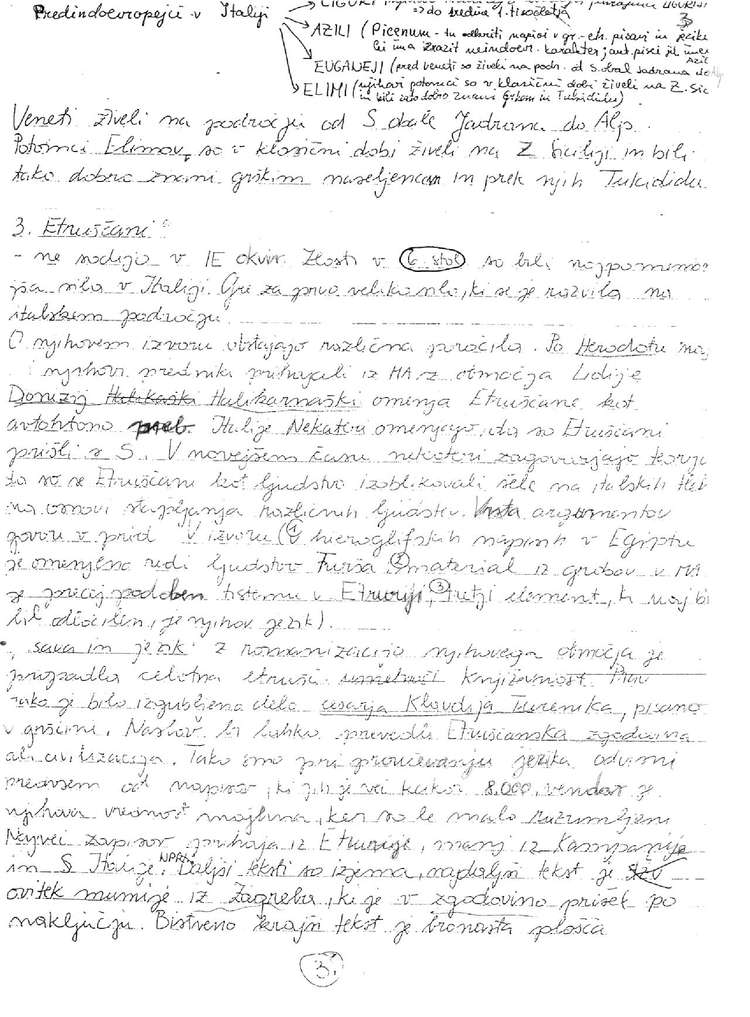 Predindoevropejci v Italiji
LIGURI
=> do sredine 1. tisočletja
3
AZILI (Picenum - tu odkriti napisi v gr.-etr. pisavi in jeziku
ki ima izrazit neindoevr. karakter; ant. pisci jih imen.
Azili
EUGANEJI (pred Veneti so živeli na podr. od S. obal Jadrana do Alp
ELIMI (njihovi potomci so v klasični dobi živeli na Z. Sic
in bili zato dobro znani Grkom in Tukididu)
Veneti živeli na področju od S obale Jadrana do Alp.
Potomci Elimov so v klasični dobi živeli na Z Siciliji in bili
tako dobro znani grškim naseljencem in prek njih Tukididu.
3. Etruščani
- ne sodijo v IE okvir. Zlasti v 6. stol so bili najpomemb
nejša sila v Italiji. Gre za prvo veliko silo, ki se je razvila na
italskem področju.
O njihovem izvoru obstajajo različna poročila. Po Herodotu naj
njihovi predniki prihajali iz MA z območja Lidije
Dionizij Halikaški Halikarnaški omenja Etruščane kot
avtohtono preb. Italije Nekateri omenjajo, da so Etruščani
prišli s S. V novejšem času nekateri zagovarjajo teorijo
da so se Etruščani kot ljudstvo izoblikovali šele na italskih tleh
na osnovi stapljanja različnih ljudstev. Vrsta argumentov
govori v prid V izvoru (1 v hieroglifskih napisih v Egiptu
je omenjeno tudi ljudstvo Turša 2 material iz grobov v MA
je precej podoben tistemu v Etruriji, 3 tretji element, ki naj bi
bil odločilen, je njihov jezik).
• pisava in jezik: z romanizacijo njihovega območja je
propadla celotna etrušč. umetnost književnost. Prav
tako je bilo izgubljeno delo cesarja Klavdija Tirenika, pisano
v grščini. Naslov bi lahko prevedli Etruščanska zgodovina
ali civilizacija. Tako smo pri proučevanju jezika odvisni
predvsem od napisov, ki jih je več kakor 8.000, vendar je
njihova vrednost majhna, ker so le malo razumljeni
Največ zapisov prihaja iz Etrurije, manj iz Kampanije
in S Italije. Daljši teksti so izjema, najdaljši tekst je
ovitek mumije iz Zagreba, ki je v zgodovino prišel po
naključju. Bistveno krajši tekst je bronasta plošča
3.